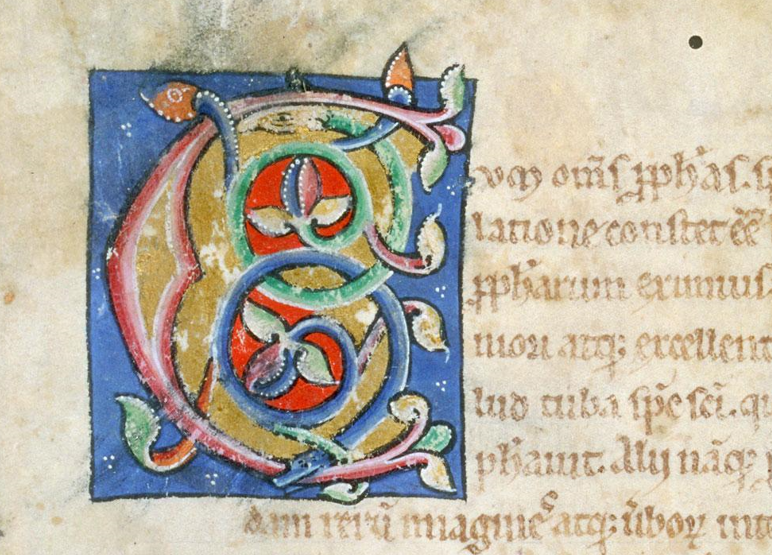 C
vm om̄s ꝓph'as. sp
latione constet eē
ꝓph'arum eximius
niori atq; excellent
lud tuba sp̄c sc̄i. qu
phauit. Alij nāq; p
dam rerū imagine᷒ atq; ūboꝝ